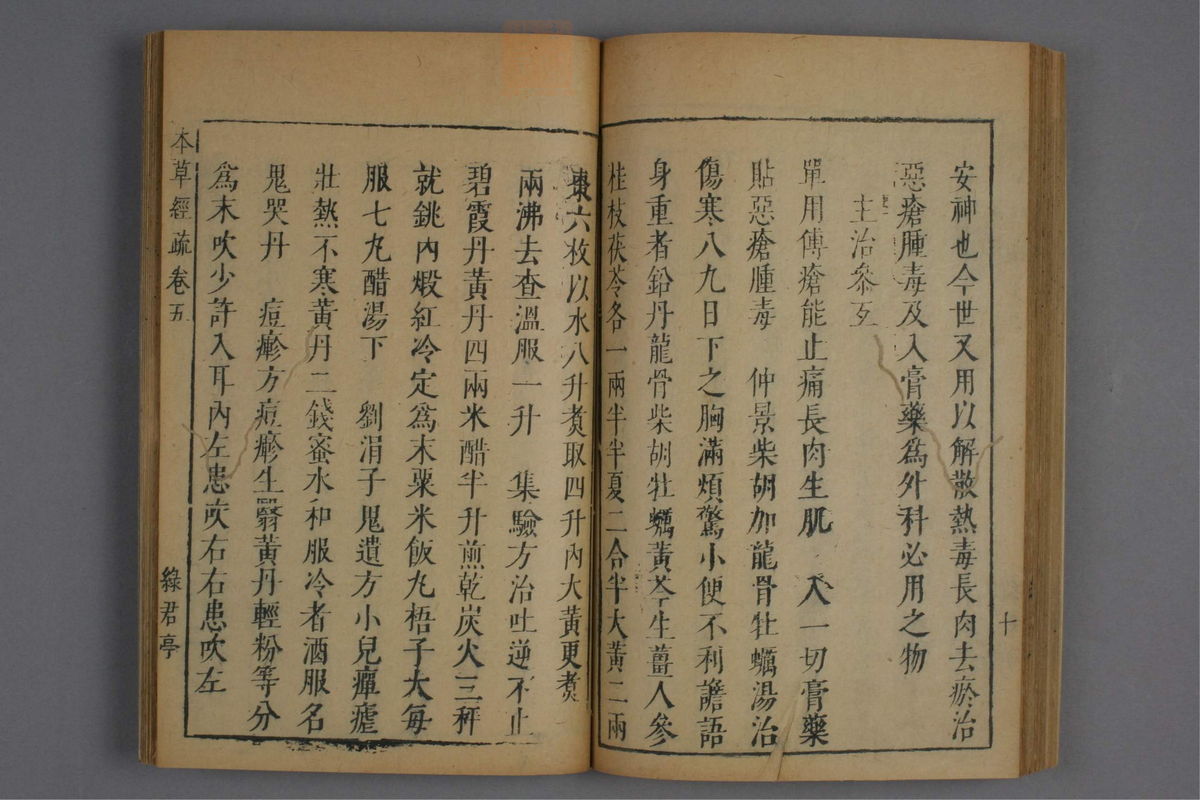 安神也今世又用以解散熱毒長肉去瘀治
惡瘡腫毒及入膏藥為外科必用之物
主治參互
單用傅瘡能止痛長肉生肌　入一切膏藥
貼惡瘡腫毒　仲景柴胡加龍骨牡蠣湯治
傷寒八九日下之胸滿煩驚小便不利譫語
身重者鉛丹龍骨柴胡牡蠣黃芩生薑人參
桂枝茯苓各一兩半半夏二合半大黃二兩
十
棗六枚以水八升煮取四升內大黃更煮
兩沸去查溫服一升　集驗方治吐逆不止
碧霞丹黃丹四兩米醋半升煎乾炭火三秤
就銚內煅紅冷定為末粟米飯丸梧子大每
服七丸醋湯下　劉涓子鬼遺方小兒癉瘧
壯熱不寒黃丹二錢蜜水和服冷者酒服名
鬼哭丹　痘瘮方痘瘮生翳黃丹輕粉等分
為末吹少許入耳內左患吹右右患吹左
本草經疏卷五
綠君亭